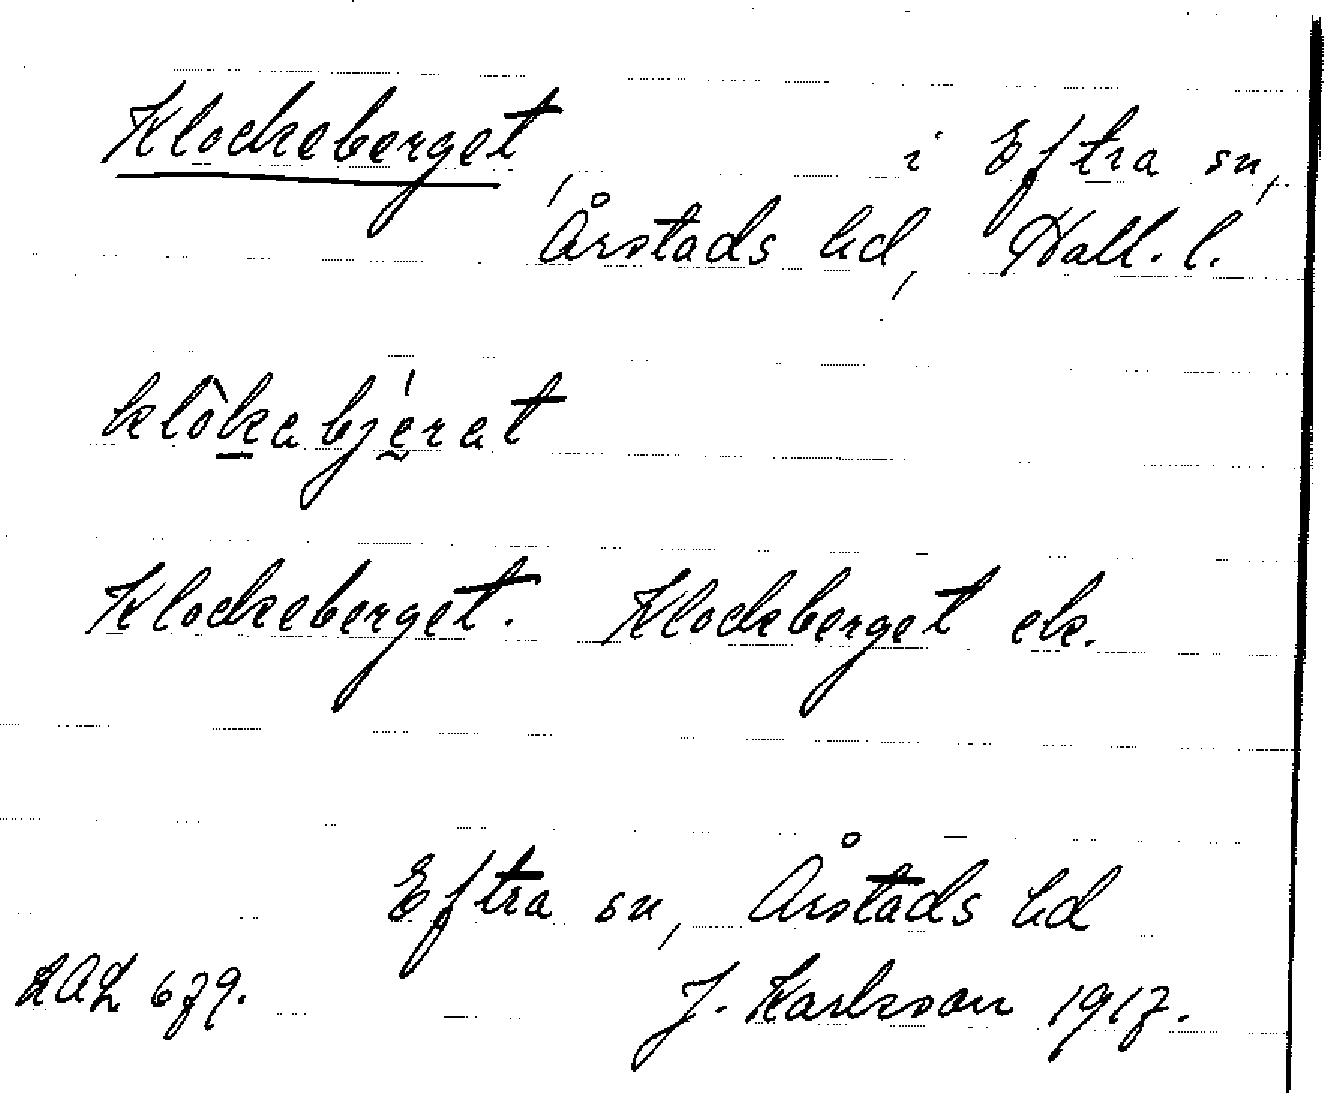 Klockeberget, i Eftra sn,
Årstads hd, Hall. l.
klòkabjérat
Klockeberget. Klockberget ek.
Eftra sn, Årstads hd
LAL 679. J. Karlsson 1917.